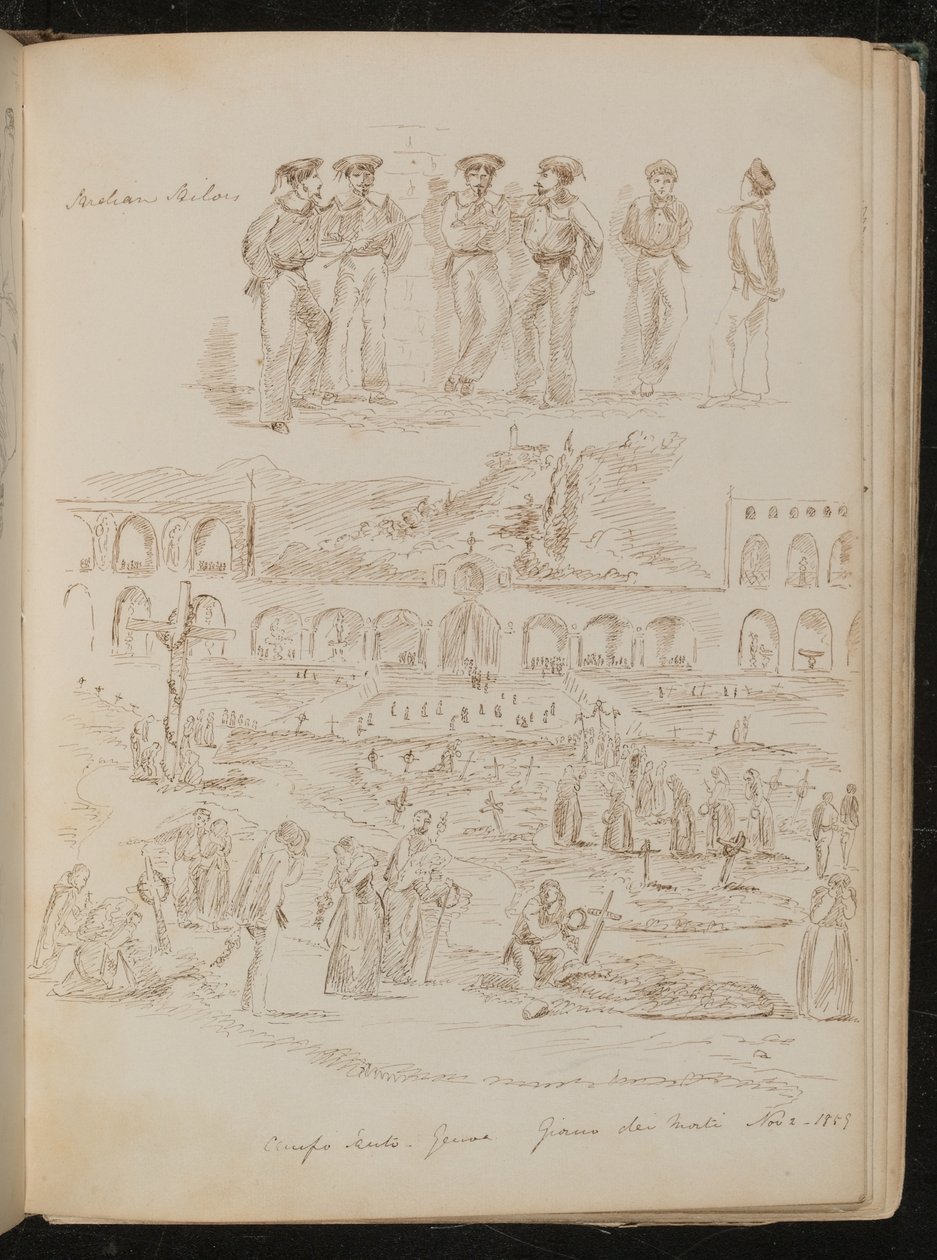 Sardian Sailors
Campo Santo - Genoa Giorno dei Morti Nov 2 - 1859